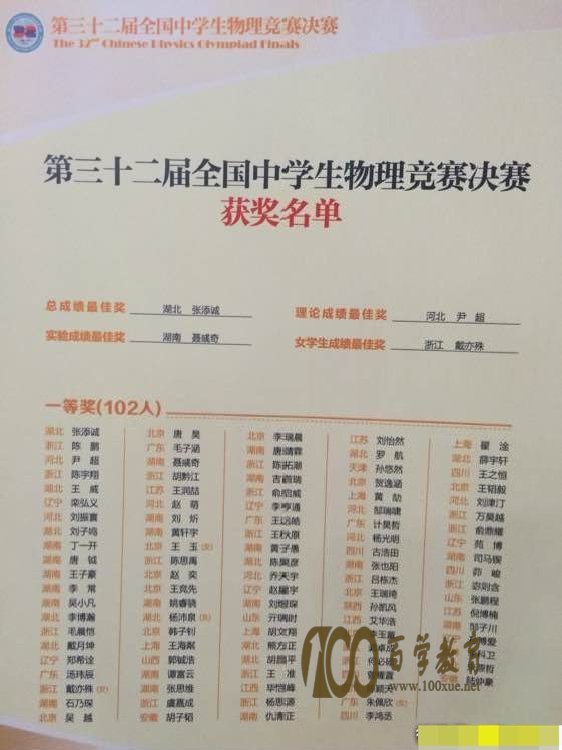 第三十二届全国中学生物理竞赛决赛
The 32nd Chinese Physics Olympiad Finals
第三十二届全国中学生物理竞赛决赛
获奖名单
总成绩最佳奖 湖北 张添诚
理论成绩最佳奖 河北 尹超
实验成绩最佳奖 湖南 聂彧奇
女学生成绩最佳奖 浙江 戴亦殊
一等奖(102人)
湖北 张添诚
浙江 陈鹏
河北 尹超
浙江 陈宇翔
湖北 王威
辽宁 栾弘义
河北 刘振寰
湖北 刘子鸣
湖南 丁一开
湖南 唐钺
湖南 王子豪
湖南 李常
湖南 吴小凡
湖北 李博瀚
浙江 毛晨恺
湖北 戴月坤
辽宁 郑希诠
广东 汤玮辰
浙江 戴亦殊(女)
湖南 石乃琛
北京 吴越
北京 唐昊
广东 毛子涵
湖南 聂彧奇
浙江 胡黔江
江苏 王润喆
河北 赵萌
湖南 刘炘
湖南 黄轩宇
北京 王玉(女)
浙江 陈思禹
北京 赵奕
北京 王竞先
湖南 姚睿骁
湖北 杨沛泉(女)
北京 韩子钊
上海 王海粼
山西 郭毓浩
湖南 谭富云
湖南 张思维
浙江 虞嘉成
安徽 胡子韬
北京 李
湖南 唐 霖
浙江 陈 潮
湖南 吉 瑞
浙江 俞 威
辽宁 李 通
广东 王 皓
浙江 王 原
湖南 黄 愚
湖北 陈 彦
河北 乔 宇
辽宁 赵 宇
湖南 刘 琛
山东 亓 时
上海 胡 翔
湖北 熊 正
湖北 胡 平
浙江 王 准
江西 华 峰
湖南 杨 源
湖南 仇 正
江苏 刘怡然
湖北 罗航
天津 孙悠然
北京 贺逸涵
上海 黄劼
河北 郜瑞啸
广东 计昊哲
河北 杨光明
四川 古浩田
湖南 张也阳
浙江 吕栋杰
北京 王瑞琦
陕西 孙凯风
江西 艾华浩
广东 朱佩欣(女)
四川 李鸿丞
上海 翟淦
湖北 薛宇轩
四川 王之恒
北京 王韬毅
河北 刘津汀
浙江 万昊越
浙江 俞鼎耀
辽宁 苑博
湖南 司马锲
四川 茆峻
浙江 宓则含
山东 张鹏程
江苏 倪博楠
100百学教育
www.100xue.net